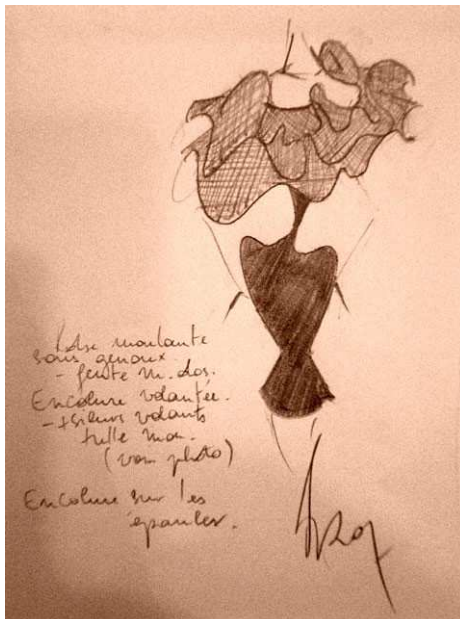 Robe moulante
sous genoux.
- fente m. dos.
Encolure volantée.
- +sieurs volants
tulle mou.
(voir photo)
Encolure sur les
épaules.